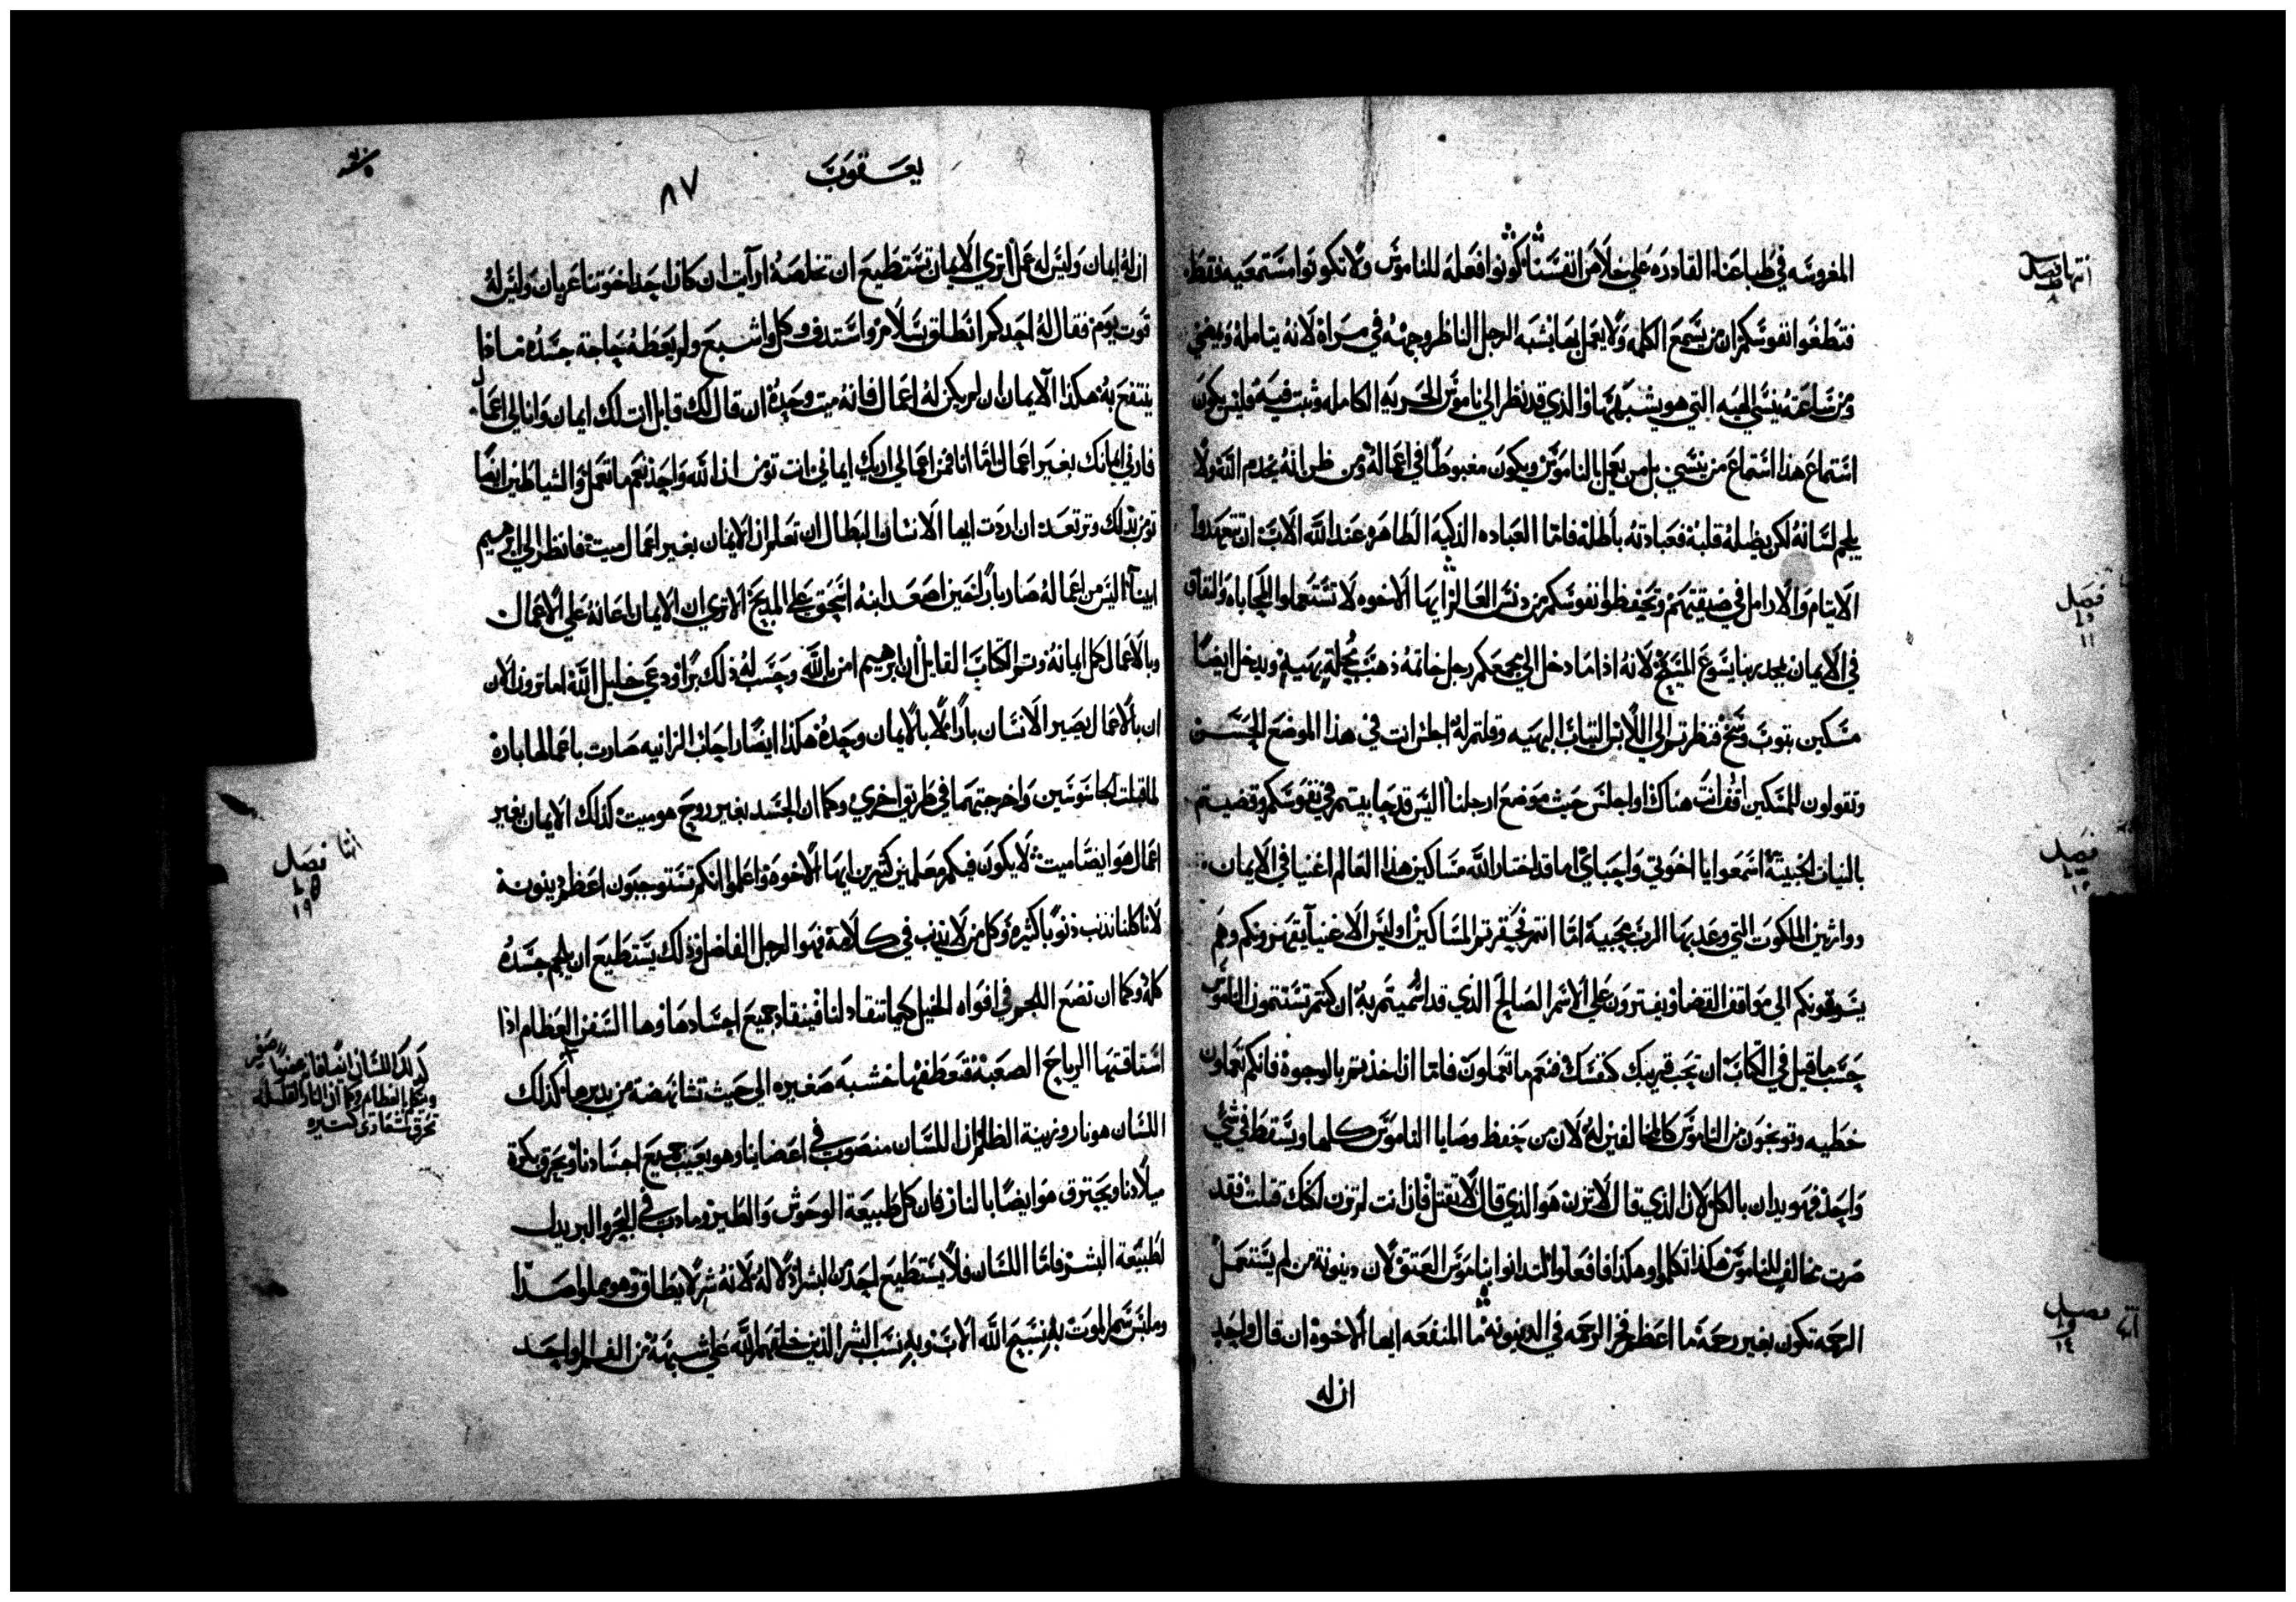 المغروسه في طباعنا القادره علي خلاص انفسنا كونوا فعله للناموس ولا تكونوا مستمعيه فقط
فتطغوا نفوسكم ان من يسمع الكلمه ولا يعمل بها يشبه الرجل الناظر وجهه في مراه لانه يتامله ويمضي
ومن ساعته ينسي الهيه التي هو يشبهها والذي قد نظر الي ناموس الحريه الكامله وثبت فيه فليس يكون
استماع هذا استماع من ينسي بل من يعمل بالناموس ويكون مغبوطا في اعماله ومن ظن انه يخدم الله ولا
يلجم لسانه لكن يضله قلبه فعبادته باطله فاما العباده الذكيه الطاهره عند الله الاب ان تتعهدوا
الايتام والارامل في ضيقتهم وتحفظوا نفوسكم من دنس العالم ايها الاخوه لا تستعملوا المحاباه والنفاق
في الايمان بمجد ربنا يسوع المسيح لانه اذا ما دخل الي مجمعكم رجل خاتمه ذهب بحلة بهية ويدخل ايضا
مسكين بثوب وسخ فنظرتم الي اللابس الثياب البهيه وقلتم له اجلس انت في هذا الموضع الحسن
وتقولون للمسكين اقف انت هناك او اجلس حيث موضع ارجلنا اليس قد حابيتم في نفوسكم وقضيتم
بالنيات الخبيثة اسمعوا يا اخوتي واحباي اما قد اختار الله مساكين هذا العالم اغنيا في الايمان
ووارثين الملكوت التي وعد بها الرب محبيه اما انتم فحقرتم المساكين اوليس الاغنيا يقهرونكم وهم
يسوقونكم الي مواقف القضا ويفترون علي الاسم الصالح الذي قد اسميتم به ان كنتم تستتمون الناموس
حسب ما قيل في الكتاب ان تحب قريبك كنفسك فنعم ما تعملون فاما ان اخذتم بالوجوه فانكم تعملون
خطيه وتوبخون من الناموس كالمخالفين له لان من حفظ وصايا الناموس كلها ويسقط في شي
واحد فهو يدان بالكل لان الذي قال لا تزن هو الذي قال لا تقتل فان انت لم تزن لكنك قتلت فقد
صرت مخالف للناموس هكذا تكلموا وهكذا فافعلوا لتدانوا بناموس العتق لان دينونة من لم يستعمل
الرحمه تكون بغير رحمة ما اعظم فخر الرحمه في الدينونه ما المنفعه ايها الاخوه ان قال واحد
ان له
انتها فصل
٨
فصل
١١
فصل
١٢
انتها فصل
١٤
يعقوب
٨٧
ان له ايمان وليس له عمل اتري الايمان تستطيع ان تخلصه ارايت ان كان احد اخوتنا عريان وليس له
قوت يوم فقال له احدكم انطلق بسلام واستدف وكل واشبع ولم يعطه حاجة جسده ماذا
ينتفع به هكذا الايمان ان لم يكن له اعمال فانه ميت وحده ان قال لك قايل انت لك ايمان وانا لي اعمال
فارني ايمانك بغير اعمال اما انا فمن اعمالي اريك ايماني انت تومن ان الله واحد نعم ما تعمل والشياطين ايضا
تومن بذلك وترتعد ان اردت ايها الانسان البطال ان تعلم ان الايمان بغير اعمال ميت فانظر الي ابرهيم
ابينا اليس من اعماله صار بارا حين اصعد ابنه اسحق علي المذبح الا تري ان الايمان اعانه علي الاعمال
وبالاعمال كمل ايمانه وتم الكتاب القايل ان ابرهيم امن بالله وحسب له ذلك برا ودعي خليل الله اما ترون الان
ان بالاعمال يصير الانسان بارا لا بالايمان وحده هكذا ايضا راحاب الزانيه صارت باعمالها بارة
لما قبلت الجاسوسين واخرجتهما في طريق اخري وكما ان الجسد بغير روح هو ميت كذلك الايمان بغير
اعمال هو ايضا ميت لا يكون فيكم معلمين كثيرين ايها الاخوه واعلموا انكم تستوجبون اعظم دينونة
لانا كلنا نذنب ذنوبا كثيره وكل من لا يذنب في كلامه فهو الرجل الفاضل وذلك يستطيع ان يلجم جسده
كله وكما ان نضع اللجم في افواه الخيل كيما تنقاد لنا فينقاد جميع اجسادها وها السفن العظام اذا
استاقتها الرياح الصعبة فتعطفها خشبه صغيره الي حيث تشا نهضة من يدبرها كذلك
اللسان هو نار وزينة الظلم ان اللسان منصوب في اعضاينا وهو يعيب جميع اجسادنا ويحرق بكرة
ميلادنا ويحترق هو ايضا بالنار فان كل طبيعة الوحوش والطير وما دب في البحر والبر يذل
لطبيعة البشر فاما اللسان فلا يستطيع احد من البشر اذلاله لانه شر لا يطاق وهو مملو صدا
وملبس سم الموت به نسبح الله الاب وبه نسب البشر الذين خلقهم الله علي شبهه من الفم الواحد
انتها فصل
١٩
كذلك اللسان ايضا فانه عضو صغير
ويتكلم بالعظايم وكما ان النار القليله
تحرق شعاري كثيره